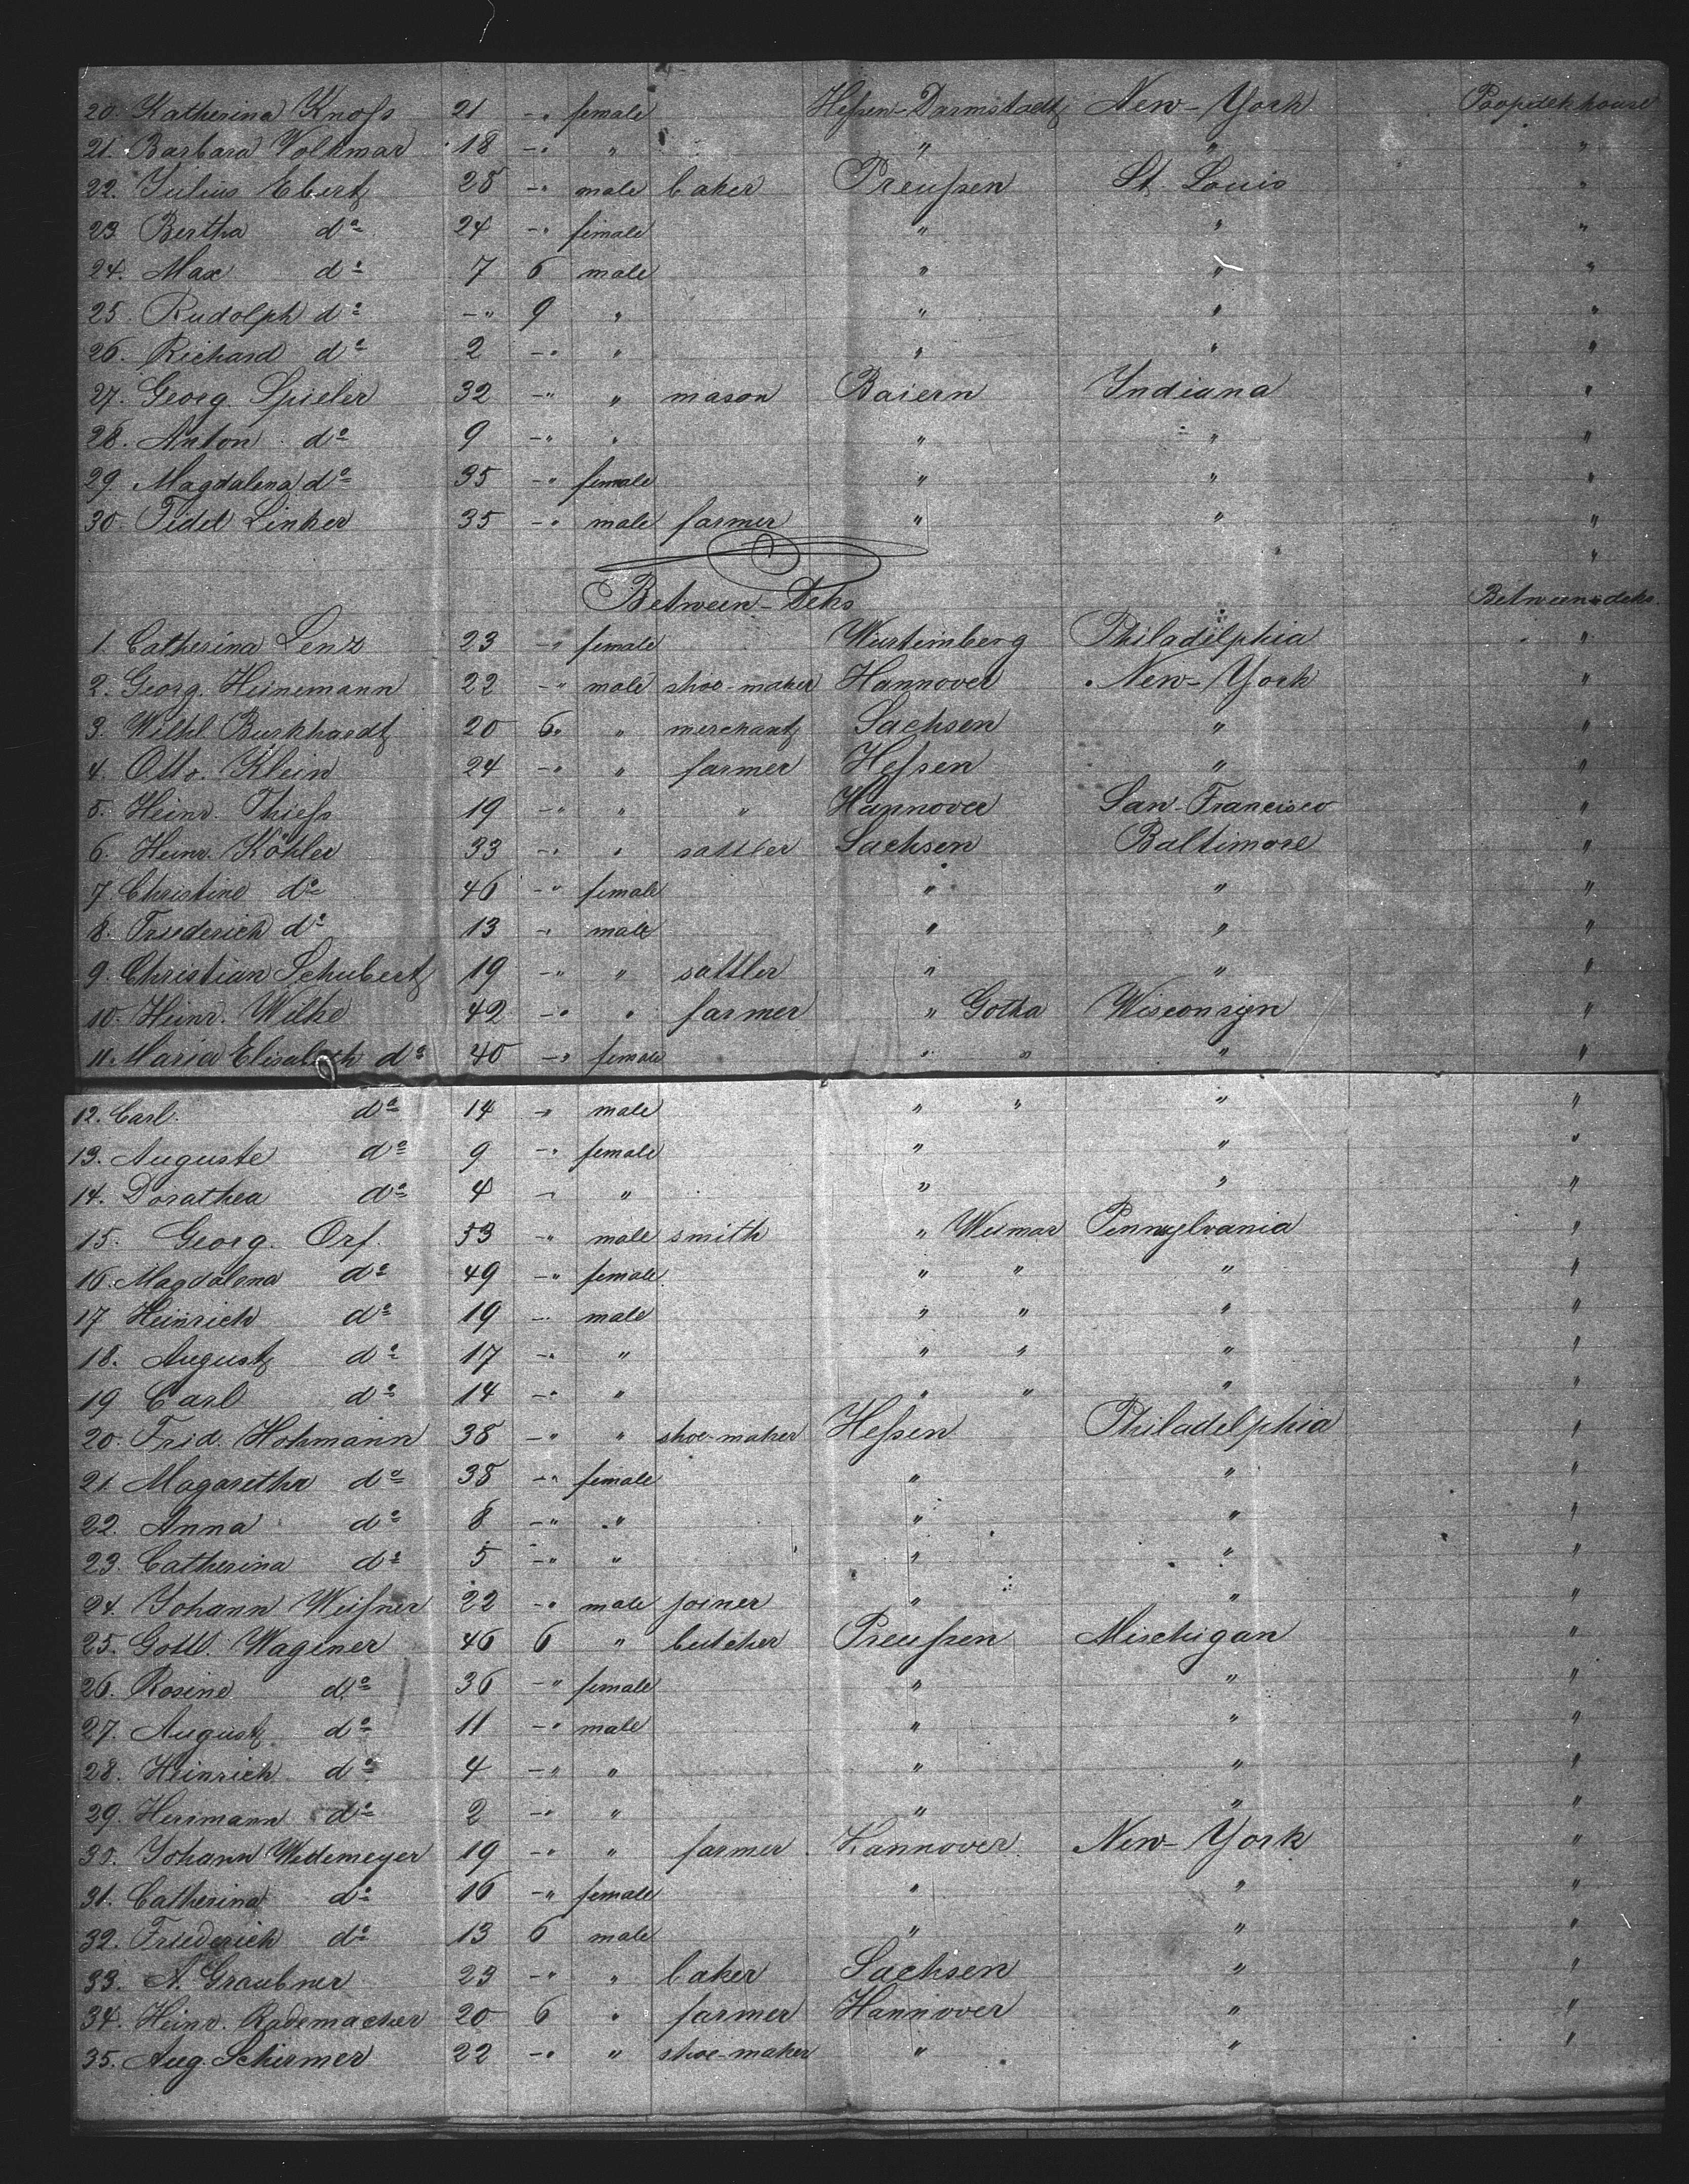 20. Katherina Knofs 21 -" female Hefsen-Darmstadt New-York Poopdekhouse
21. Barbara Volkmar 18 -" " " " "
22. Julius Ebert 28 -" male baker Preufsen St. Louis "
23. Bertha do 24 -" female " " "
24. Max do 7 6 male " " "
25. Rudolph do -" 9 " " " "
26. Richard do 2 -" " " " "
27. Georg. Spieler 32 -" " mason Baiern Indiana "
28. Anton do 9 -" " " " "
29. Magdalena do 35 -" female " " "
30. Fidel Linker 35 -" male farmer " " "
"
Between-Deks Between-deks.
1. Catherina Lenz 23 -" female Wurtemberg Philadelphia "
2. Georg. Heinemann 22 -" male shoe-maker Hannover New-York "
3. Wilhl Burkhardt 20 6" " merchant Sachsen " "
4. Otto. Klein 24 -" " farmer Hefsen " "
5. Heinr. Thiefs 19 -" " " Hannover San-Francisco "
6. Heinr. Köhler 33 -" " sattler Sachsen Baltimore "
7. Christine do 46 -" female " " "
8. Friederich do 13 -" male " " "
9. Christian Schubert 19 -" " sattler " " "
10. Heinr. Wilke 42 -" " farmer " Gotha Wisconsijn "
11. Maria Elisabeth do 40 -" female " " " "
12. Carl. do 14 -" male " " " "
13. Auguste do 9 -" female " " "
14. Dorathea do 4 - " " " "
15. Georg. Orf. 53 -" male smith " Weimar Pennsylvania "
16. Magdalena do 49 -" female " " " "
17 Heinrich do 19 -" male " " " "
18. August do 17 -" " " " " "
19 Carl do 14 -" " " " " "
20. Frid. Hohmann 38 -" " shoe-maker Hefsen Philadelphia "
21. Magaretha do 38 -" female " " "
22. Anna do 8 -" " " " "
23. Catherina do 5 -" " " " "
24. Johann Weifsner 22 -" male joiner " " "
25. Gottl. Wagener 46 6 " butcher Preufsen Mischigan "
26. Rosine do 36 -" female " " "
27. August do 11 -" male " " "
28. Heinrich do 4 -" " " " "
29. Hermann do 2 -" " " " "
30. Johann Wedemeyer 19 -" " farmer Hannover. New-York "
31. Catherina do 16 -" female " " "
32. Friederich do 13 6 male " " "
33. A. Graubner 23 -" " baker Sachsen " "
34. Heinr. Rademacher 20 6 " farmer Hannover " "
35. Aug. Schirmer 22 -" " shoe-maker " " "